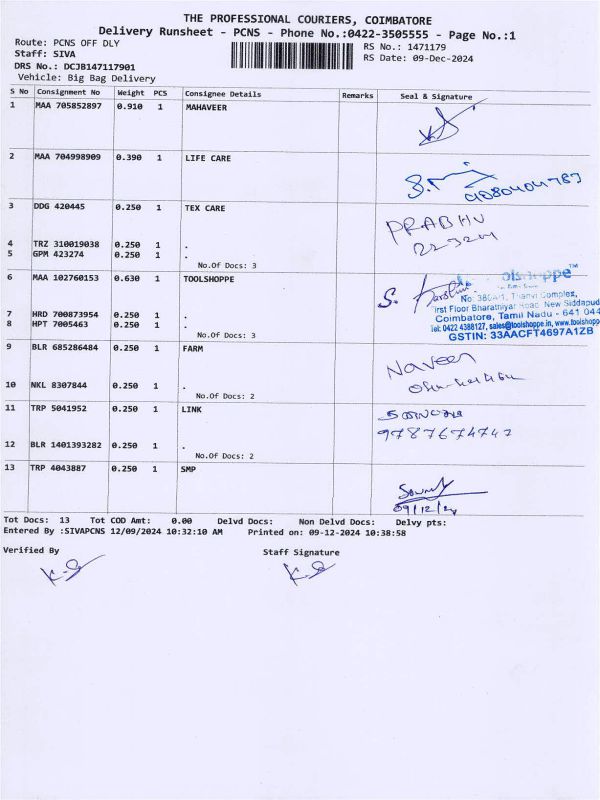 THE PROFESSIONAL COURIERS, COIMBATORE
Delivery Runsheet - PCNS - Phone No.:0422-3505555 - Page No.:1
Route: PCNS OFF DLY
RS No.: 1471179
Staff: SIVA
RS Date: 09-Dec-2024
DRS No.: DCJB147117901
Vehicle: Big Bag Delivery
S No Consignment No Weight PCS Consignee Details Remarks Seal & Signature
1 MAA 705852897 0.910 1 MAHAVEER
2 MAA 704998909 0.390 1 LIFE CARE
3 DDG 420445 0.250 1 TEX CARE
PRABHU
4 TRZ 310019038 0.250 1 .
5 GPM 423274 0.250 1 .
No.Of Docs: 3
6 MAA 102760153 0.630 1 TOOLSHOPPE
No: 380A/1, Thanvi Complex,
irst Floor Bharathiyar Road, New Siddapud
7 HRD 700873954 0.250 1 .
Coimbatore, Tamil Nadu - 641 044
8 HPT 7005463 0.250 1 .
Tel: 0422 4388127, sales@toolshoppe.in, www.toolshopp
No.Of Docs: 3
GSTIN: 33AACFT4697A1ZB
9 BLR 685286484 0.250 1 FARM
Naveen
10 NKL 8307844 0.250 1 .
No.Of Docs: 2
11 TRP 5041952 0.250 1 LINK
9787674747
12 BLR 1401393282 0.250 1 .
No.Of Docs: 2
13 TRP 4043887 0.250 1 SMP
09/12/24
Tot Docs: 13 Tot COD Amt: 0.00 Delvd Docs: Non Delvd Docs: Delvy pts:
Entered By :SIVAPCNS 12/09/2024 10:32:10 AM Printed on: 09-12-2024 10:38:58
Verified By Staff Signature